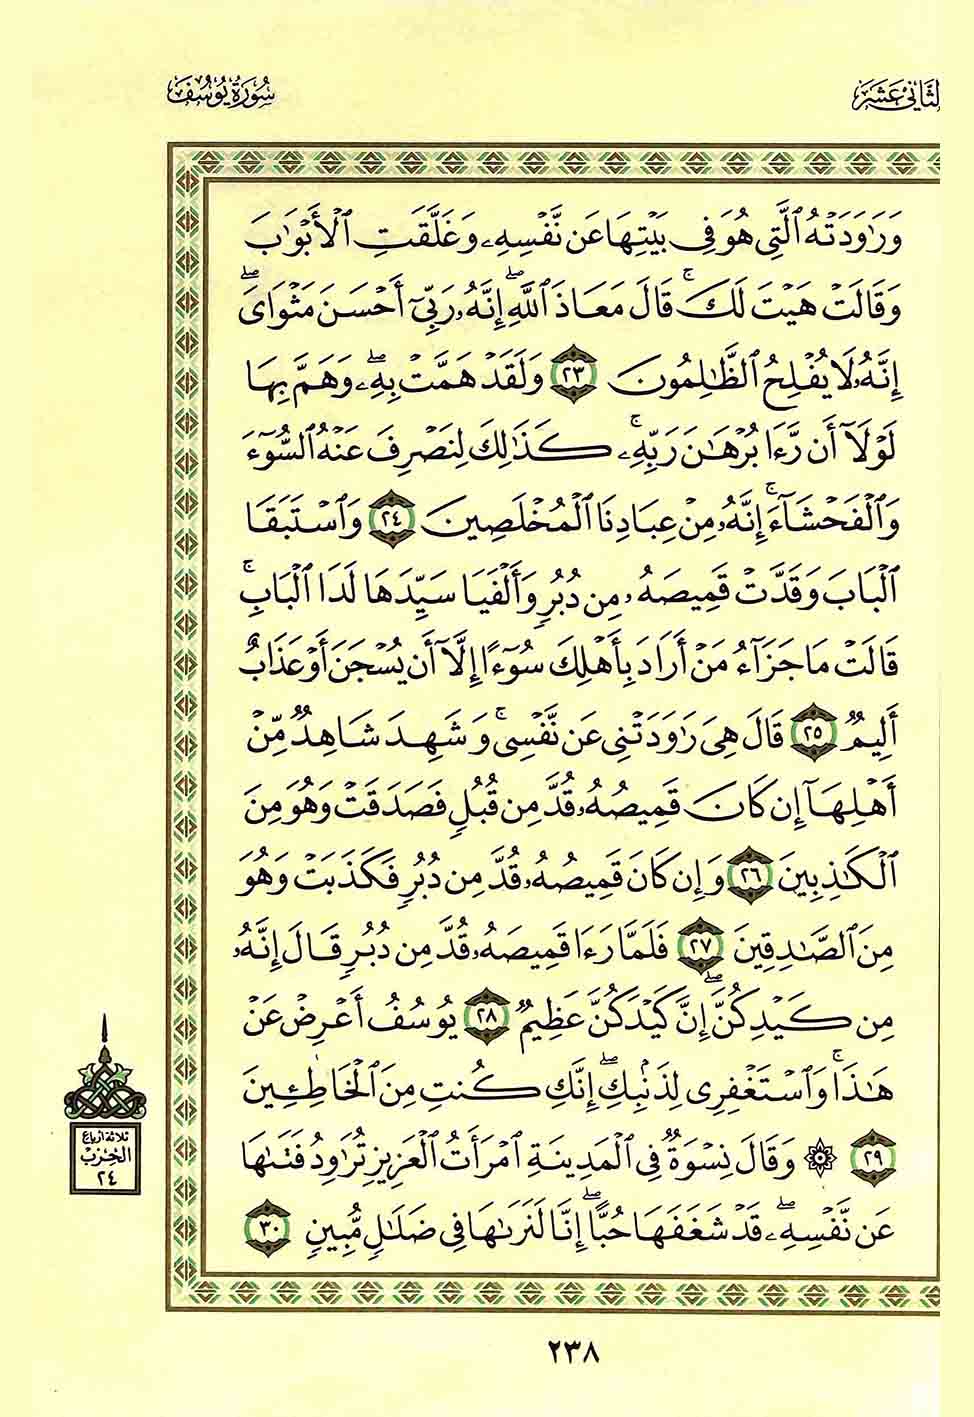 لثاني عشر
سورة يوسف
وَرَٰوَدَتْهُ ٱلَّتِى هُوَ فِى بَيْتِهَا عَن نَّفْسِهِۦ وَغَلَّقَتِ ٱلْأَبْوَٰبَ
وَقَالَتْ هَيْتَ لَكَ ۚ قَالَ مَعَاذَ ٱللَّهِ ۖ إِنَّهُۥ رَبِّىٓ أَحْسَنَ مَثْوَاىَ ۖ
إِنَّهُۥ لَا يُفْلِحُ ٱلظَّٰلِمُونَ ٢٣ وَلَقَدْ هَمَّتْ بِهِۦ ۖ وَهَمَّ بِهَا
لَوْلَآ أَن رَّءَا بُرْهَٰنَ رَبِّهِۦ ۚ كَذَٰلِكَ لِنَصْرِفَ عَنْهُ ٱلسُّوٓءَ
وَٱلْفَحْشَآءَ ۚ إِنَّهُۥ مِنْ عِبَادِنَا ٱلْمُخْلَصِينَ ٢٤ وَٱسْتَبَقَا
ٱلْبَابَ وَقَدَّتْ قَمِيصَهُۥ مِن دُبُرٍ وَأَلْفَيَا سَيِّدَهَا لَدَا ٱلْبَابِ ۚ
قَالَتْ مَا جَزَآءُ مَنْ أَرَادَ بِأَهْلِكَ سُوٓءًا إِلَّآ أَن يُسْجَنَ أَوْ عَذَابٌ
أَلِيمٌ ٢٥ قَالَ هِىَ رَٰوَدَتْنِى عَن نَّفْسِى ۚ وَشَهِدَ شَاهِدٌ مِّنْ
أَهْلِهَآ إِن كَانَ قَمِيصُهُۥ قُدَّ مِن قُبُلٍ فَصَدَقَتْ وَهُوَ مِنَ
ٱلْكَٰذِبِينَ ٢٦ وَإِن كَانَ قَمِيصُهُۥ قُدَّ مِن دُبُرٍ فَكَذَبَتْ وَهُوَ
مِنَ ٱلصَّٰدِقِينَ ٢٧ فَلَمَّا رَءَا قَمِيصَهُۥ قُدَّ مِن دُبُرٍ قَالَ إِنَّهُۥ
مِن كَيْدِكُنَّ ۖ إِنَّ كَيْدَكُنَّ عَظِيمٌ ٢٨ يُوسُفُ أَعْرِضْ عَنْ
هَٰذَا ۚ وَٱسْتَغْفِرِى لِذَنۢبِكِ ۖ إِنَّكِ كُنتِ مِنَ ٱلْخَاطِـِٔينَ
٢٩ ۞ وَقَالَ نِسْوَةٌ فِى ٱلْمَدِينَةِ ٱمْرَأَتُ ٱلْعَزِيزِ تُرَٰوِدُ فَتَىٰهَا
عَن نَّفْسِهِۦ ۖ قَدْ شَغَفَهَا حُبًّا ۖ إِنَّا لَنَرَىٰهَا فِى ضَلَٰلٍ مُّبِينٍ ٣٠
ثلاثة أرباع
الحزب
٢٤
٢٣٨